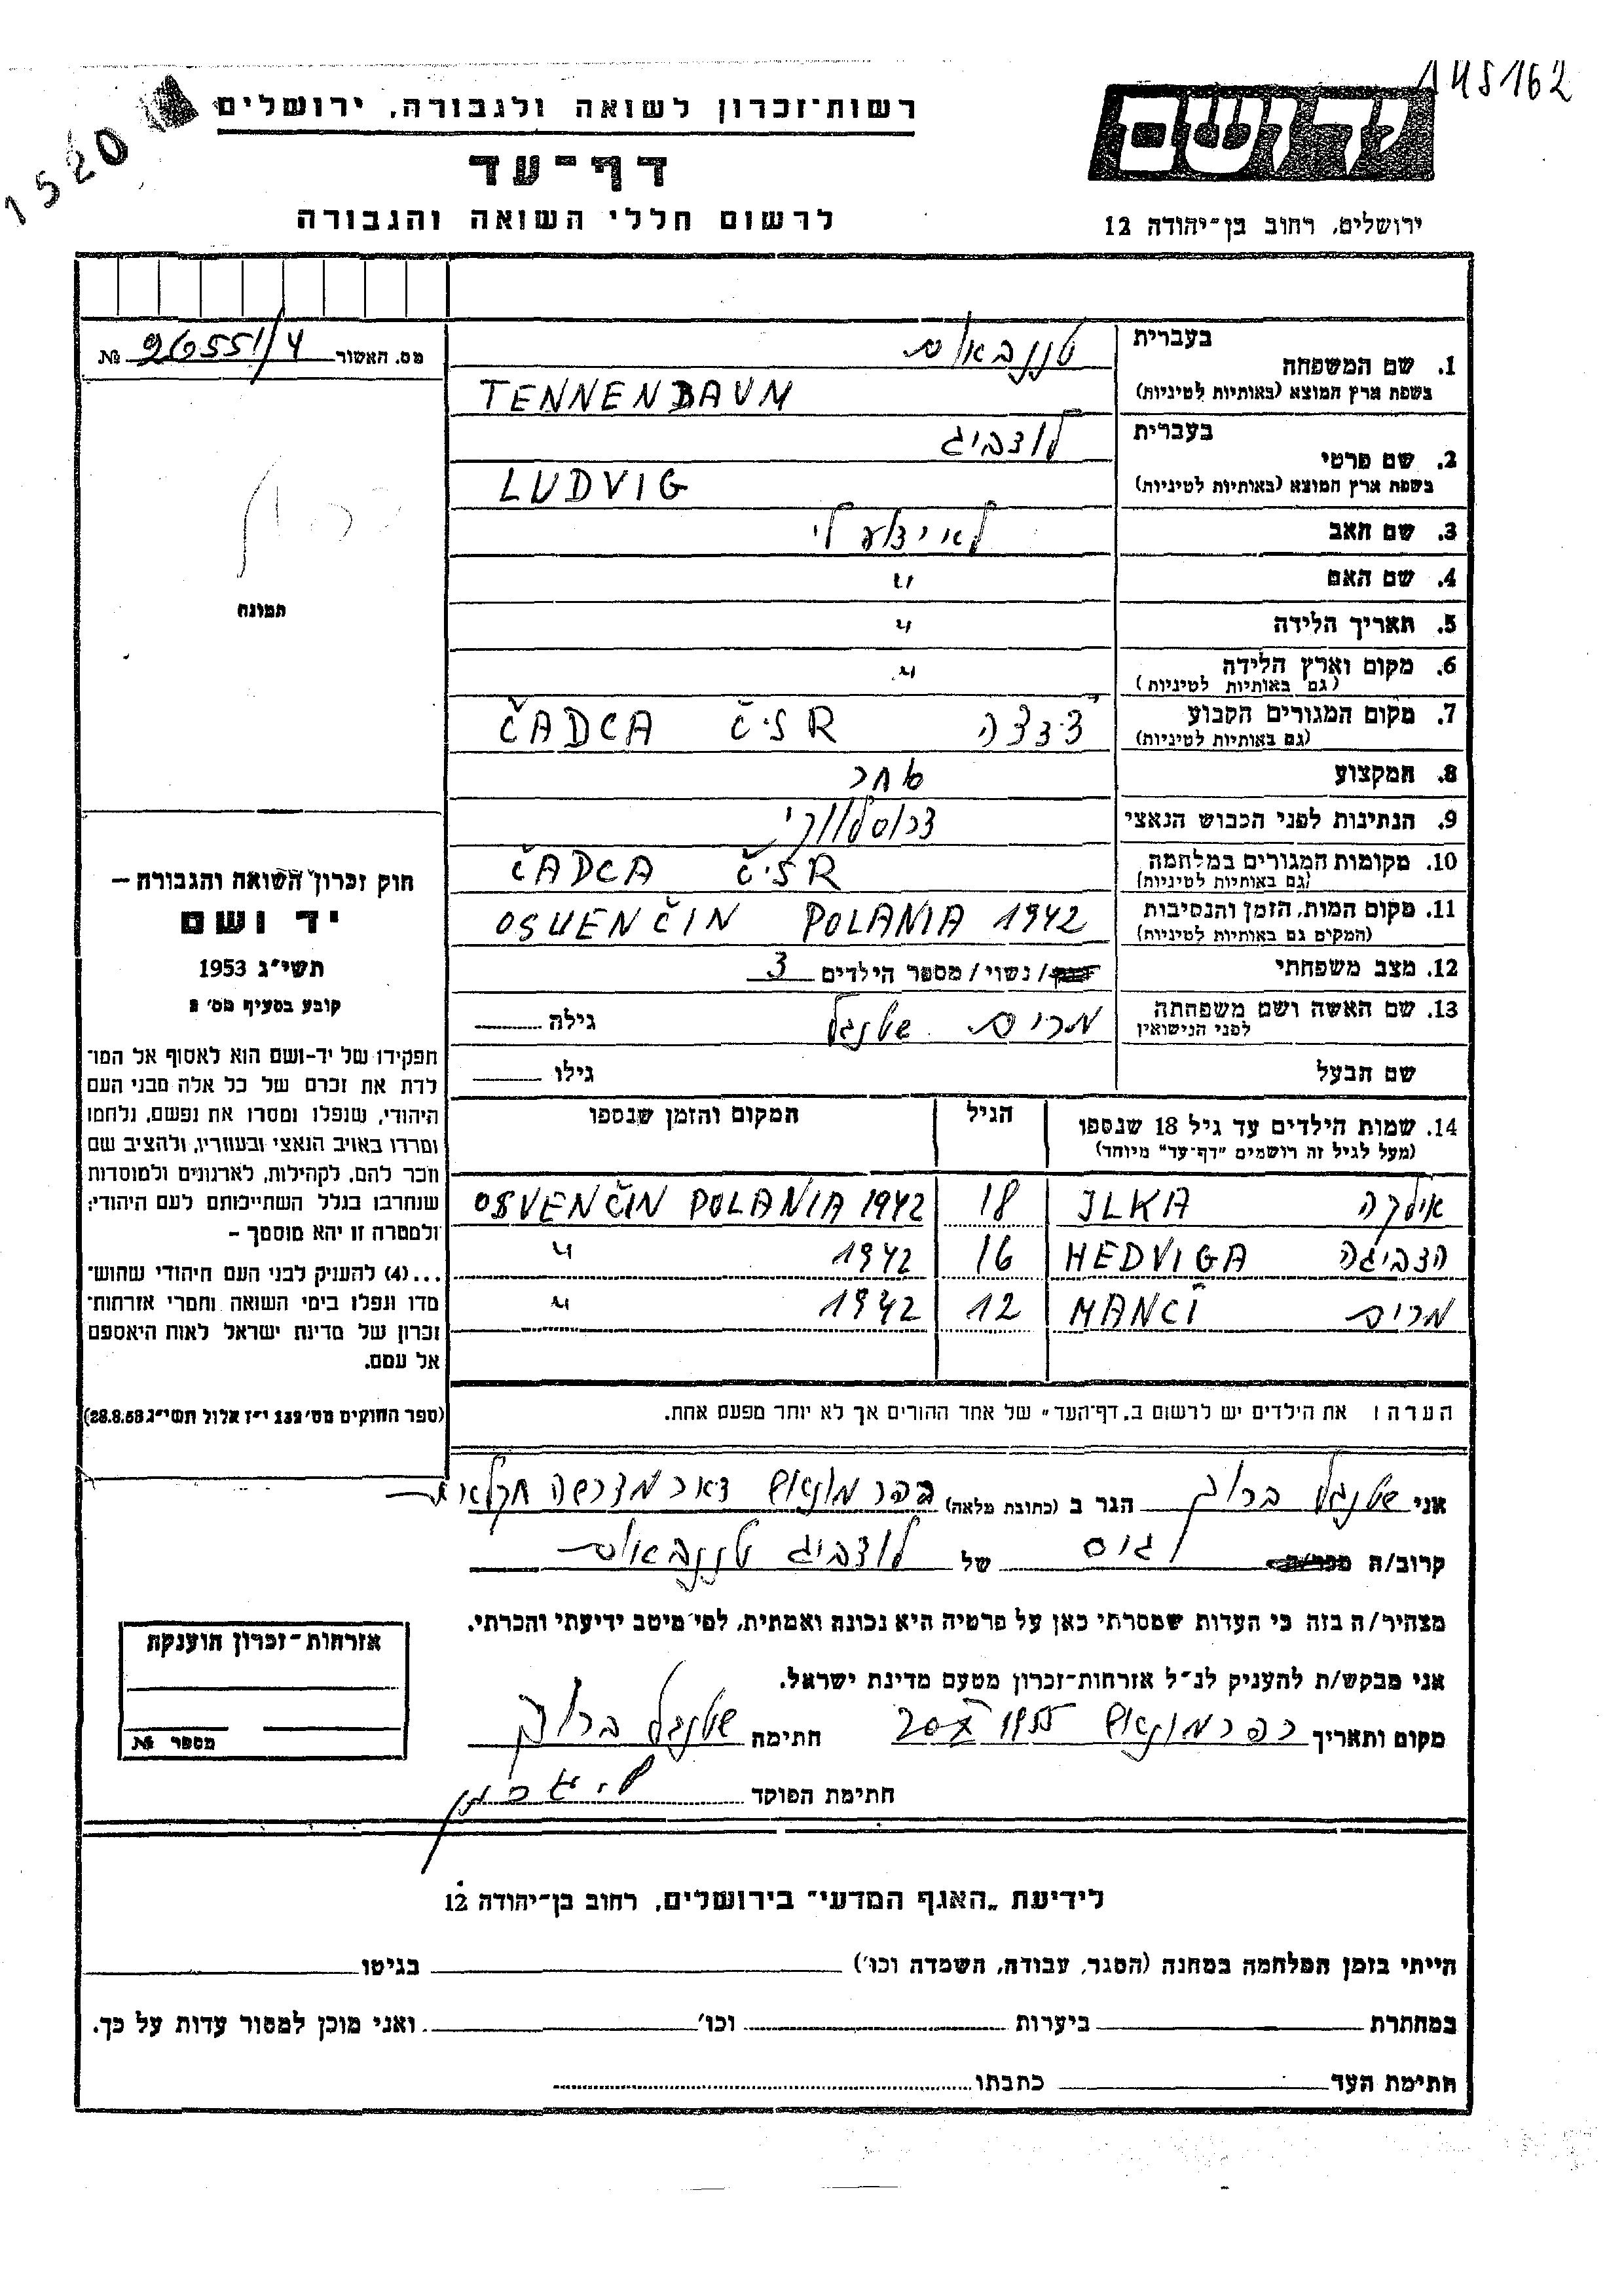 145162
1520
רשות־זכרון לשואה ולגבורה, ירושלים
ידושם
דף־עד
לרשום חללי השואה והגבורה
ירושלים, רחוב בן־יהודה 12
מס. האשור 26551/4 №
בעברית טננבאום
1. שם המשפחה
בשפת ארץ המוצא (באותיות לטיניות) TENNENBAUM
בעברית לודביג
2. שם פרטי
בשפת ארץ המוצא (באותיות לטיניות) LUDVIG
3. שם האב לא ידוע לי
4. שם האם "
5. תאריך הלידה "
6. מקום וארץ הלידה "
(גם באותיות לטיניות)
7. מקום המגורים הקבוע ČADCA Č.S.R
(גם באותיות לטיניות)
8. המקצוע סוחר
9. הנתינות לפני הכבוש הנאצי
10. מקומות המגורים במלחמה ČADCA Č.S.R
(גם באותיות לטיניות)
11. מקום המות, הזמן והנסיבות OSVENČIN POLANIA 1942
(המקום גם באותיות לטיניות)
12. מצב משפחתי / נשוי / מספר הילדים 3
13. שם האשה ושם משפחתה מרים שטנגל גילה
לפני הנישואין
שם הבעל גילו
14. שמות הילדים עד גיל 18 שנספו הגיל המקום והזמן שנספו
(מעל לגיל זה רושמים "דף־עד" מיוחד)
אילקה JLKA 18 OSVENČIN POLANIA 1942
הדביגה HEDVIGA 16 1942 "
מרים MANCI 12 1942 "
הערה: את הילדים יש לרשום ב„דף־העד" של אחד ההורים אך לא יותר מפעם אחת.
תמונה
חוק זכרון השואה והגבורה —
יד ושם
תשי"ג 1953
קובע בסעיף מס' 2
תפקידו של יד-ושם הוא לאסוף אל המו־
לדת את זכרם של כל אלה מבני העם
היהודי, שנפלו ומסרו את נפשם, נלחמו
ומרדו באויב הנאצי ובעוזריו, ולהציב שם
וזכר להם, לקהילות, לארגונים ולמוסדות
שנחרבו בגלל השתייכותם לעם היהודי;
ולמטרה זו יהא מוסמך —
...(4) להעניק לבני העם היהודי שהוש־
מדו ונפלו בימי השואה והמרי אזרחות־
זכרון של מדינת ישראל לאות היאספם
אל עמם.
(ספר החוקים מס' 132 י"ז אלול תשי"ג 28.8.53)
אני שטנגל ברוך הגר ב (כתובת מלאה) כפר מונאש דאר מדרשה חקלאית
קרוב/ה גיס של לודביג טננבאום
מצהיר/ה בזה כי העדות שמסרתי כאן על פרטיה היא נכונה ואמתית, לפי מיטב ידיעתי והכרתי.
אני מבקש/ת להעניק לנ"ל אזרחות־זכרון מטעם מדינת ישראל.
מקום ותאריך כפר מונאש 1955 חתימה שטנגל ברוך
חתימת הפוקד
אזרחות־זכרון הוענקה
מספר №
לידיעת „האגף המדעי" בירושלים, רחוב בן־יהודה 12
הייתי בזמן המלחמה במחנה (הסגר, עבודה, השמדה וכו') בגיטו
במחתרת ביערות וכו' ואני מוכן למסור עדות על כך.
חתימת העד כתבתו